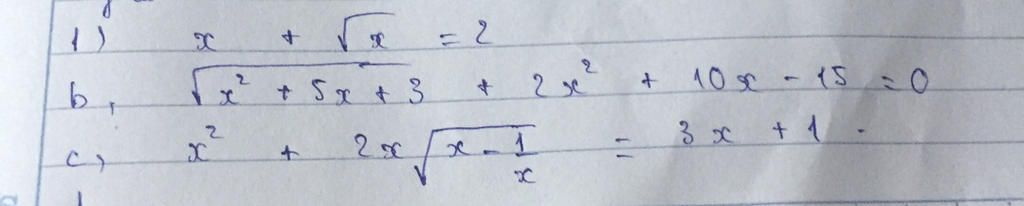 1) x + √x = 2
b, √(x² + 5x + 3) + 2x² + 10x - 15 = 0
c, x² + 2x√(x - 1/x) = 3x + 1.